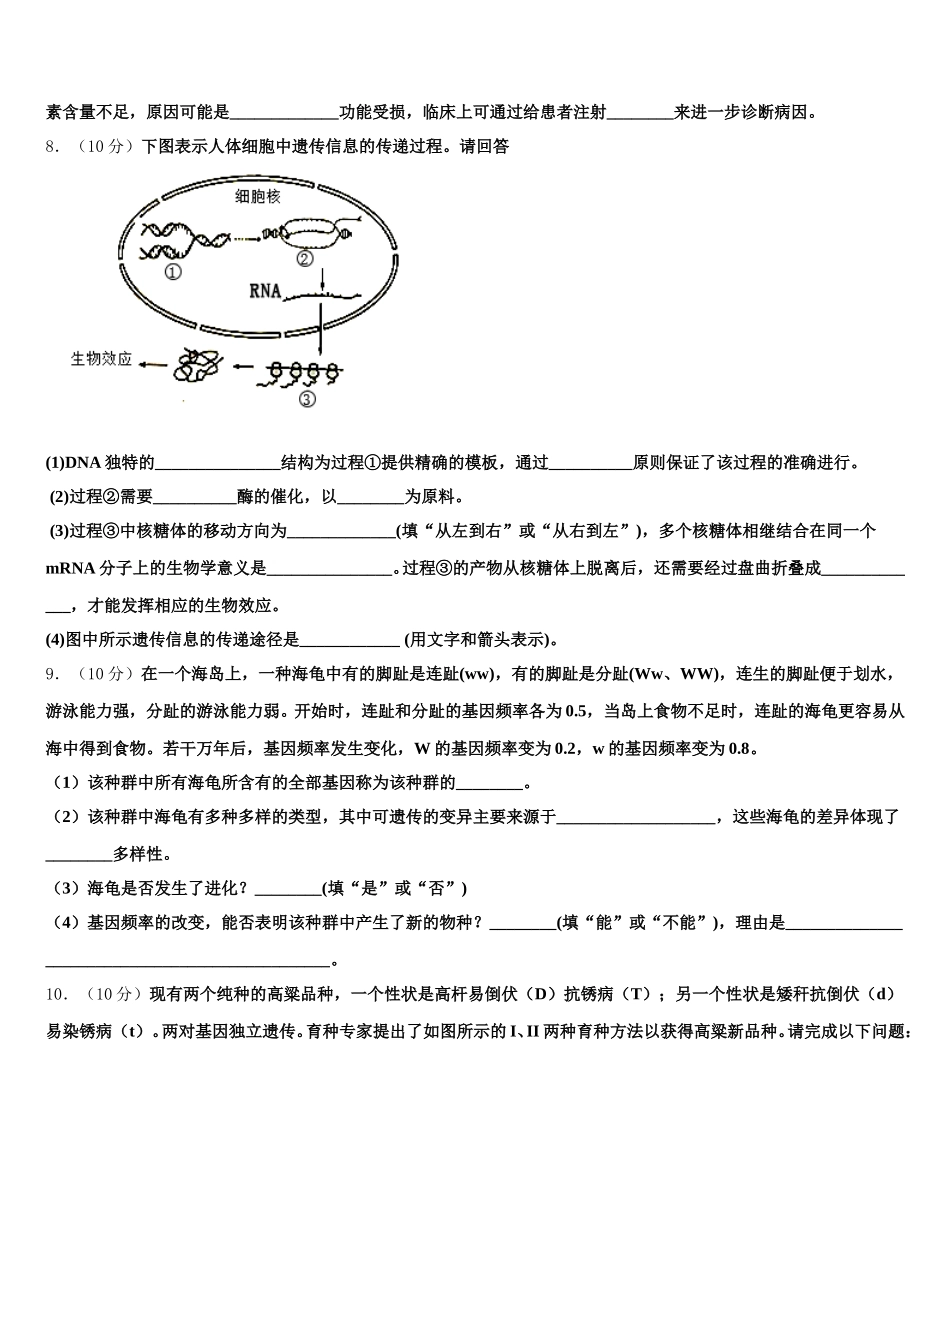 素含量不足，原因可能是_____________功能受损，临床上可通过给患者注射________来进一步诊断病因。
8．（10 分）下图表示人体细胞中遗传信息的传递过程。请回答
细胞核
①
②
RNA
生物效应
③
(1)DNA 独特的_______________结构为过程①提供精确的模板，通过__________原则保证了该过程的准确进行。
(2)过程②需要__________酶的催化，以________为原料。
(3)过程③中核糖体的移动方向为_____________(填“从左到右”或“从右到左”)，多个核糖体相继结合在同一个
mRNA 分子上的生物学意义是_______________。过程③的产物从核糖体上脱离后，还需要经过盘曲折叠成__________
___，才能发挥相应的生物效应。
(4)图中所示遗传信息的传递途径是____________ (用文字和箭头表示)。
9．（10 分）在一个海岛上，一种海龟中有的脚趾是连趾(ww)，有的脚趾是分趾(Ww、WW)，连生的脚趾便于划水，
游泳能力强，分趾的游泳能力弱。开始时，连趾和分趾的基因频率各为 0.5，当岛上食物不足时，连趾的海龟更容易从
海中得到食物。若干万年后，基因频率发生变化，W 的基因频率变为 0.2，w 的基因频率变为 0.8。
（1）该种群中所有海龟所含有的全部基因称为该种群的________。
（2）该种群中海龟有多种多样的类型，其中可遗传的变异主要来源于___________________，这些海龟的差异体现了
________多样性。
（3）海龟是否发生了进化？________(填“是”或“否”)
（4）基因频率的改变，能否表明该种群中产生了新的物种？________(填“能”或“不能”)，理由是______________
__________________________________。
10．（10 分）现有两个纯种的高粱品种，一个性状是高杆易倒伏（D）抗锈病（T）；另一个性状是矮秆抗倒伏（d）
易染锈病（t）。两对基因独立遗传。育种专家提出了如图所示的 I、II 两种育种方法以获得高粱新品种。请完成以下问题：